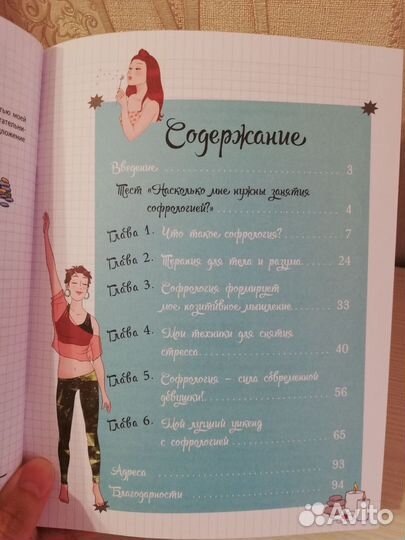 тью моей
тательни-
ложение
Содержание
Введение 3
Тест «Насколько мне нужны занятия
софрологией?» 4
Глава 1. Что такое софрология? 7
Глава 2. Терапия для тела и разума 24
Глава 3. Софрология формирует
мое позитивное мышление 33
Глава 4. Мои техники для снятия
стресса 40
Глава 5. Софрология – сила современной
девушки! 56
Глава 6. Мой лучший уикенд
с софрологией 65
Адреса 93
Благодарности 94
Avito